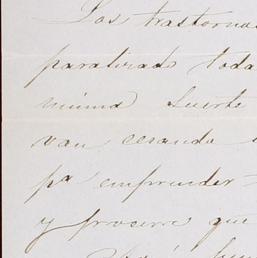 Los trastorno
paralizado toda
misma suerte
van cesando
pª emprender
y procure que